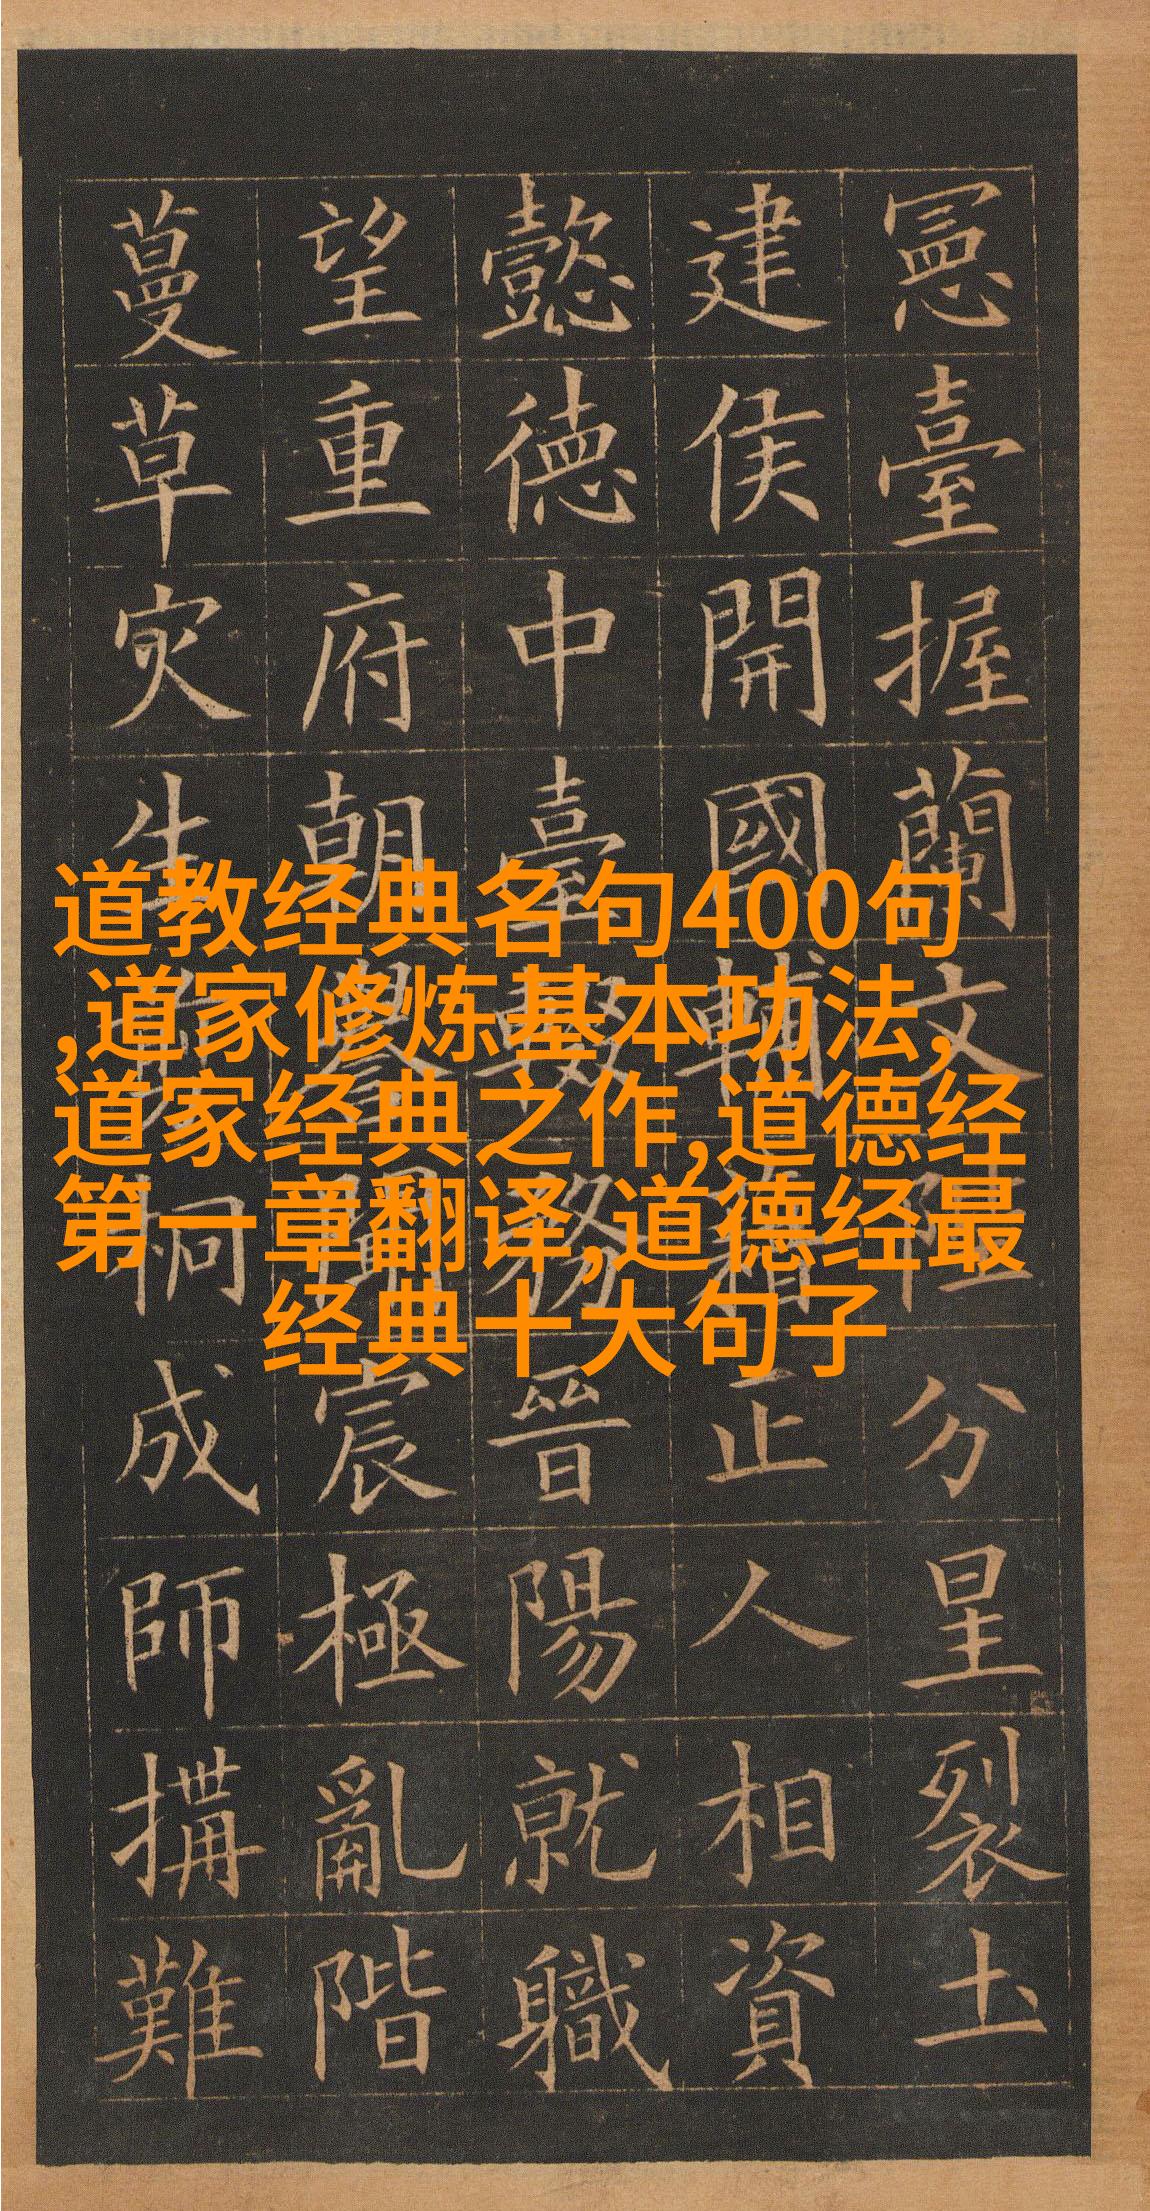 道教经典名句400句
,道家修炼基本功法,
道家经典之作,道德经
第一章翻译,道德经最
经典十大句子
憲臺握蘭文陛分星裂土
建侯開國輔正人相資
懿德中臺輟務晉陽就職
望重府朝譽聞宸極亂階
蔓草灾生桐成師搆難